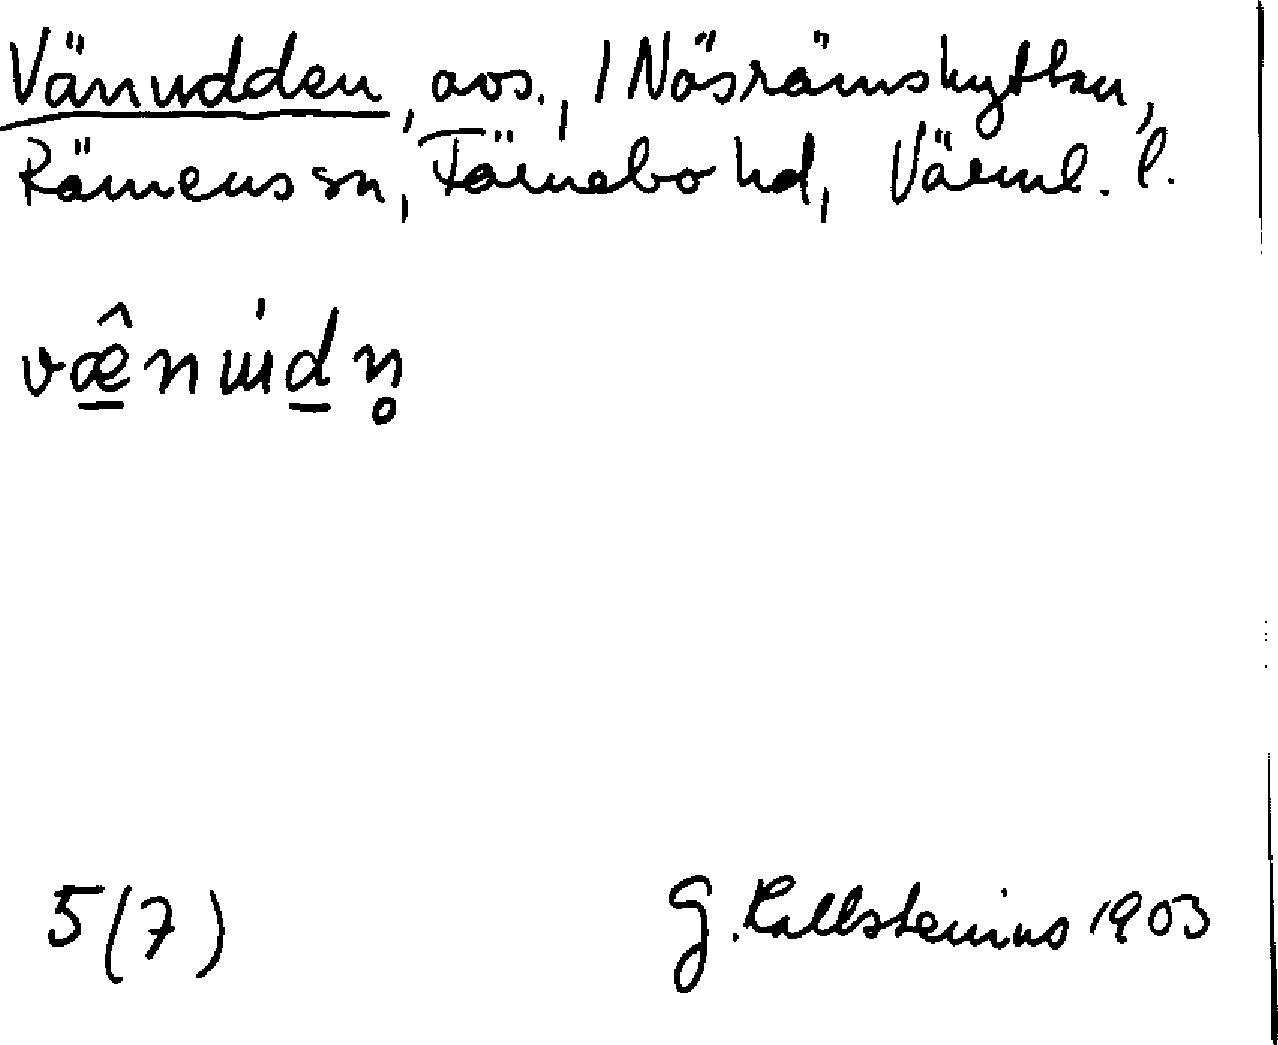 Vänudden, avs., / Näsrämshyttan,
Rämens sn, Färnebo hd, Värml. l.
væ̂nɯ́dn̥
5(7)
G. Kallstenius 1903